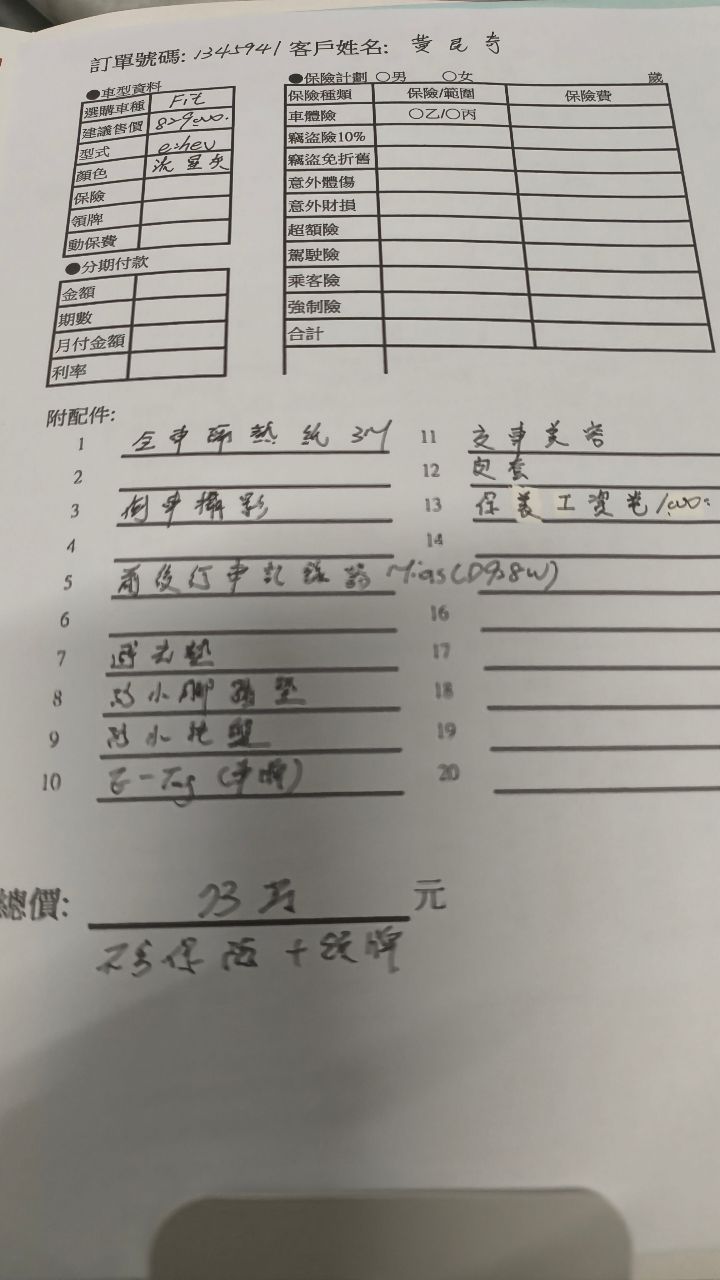 訂單號碼: 1345941 客戶姓名: 黃昆奇
●車型資料
選購車種 Fit
建議售價 829000.
型式 e:hev
顏色 流星灰
保險
領牌
動保費
●分期付款
金額
期數
月付金額
利率
●保險計劃 ○男 ○女 歲
保險種類 保險/範圍 保險費
車體險 ○乙/○丙
竊盜險10%
竊盜免折舊
意外體傷
意外財損
超額險
駕駛險
乘客險
強制險
合計
附配件:
1 全車隔熱紙 3M
2
3 倒車攝影
4
5 前後行車記錄器 Mio
6
7 避光墊
8 防水腳踏墊
9 防水托盤
10 E-Tag (車牌)
11 交車美容
12 皮套
13 保養工資卷1000.
14
16
17
18
19
20
總價: 万 元
不含保險+領牌